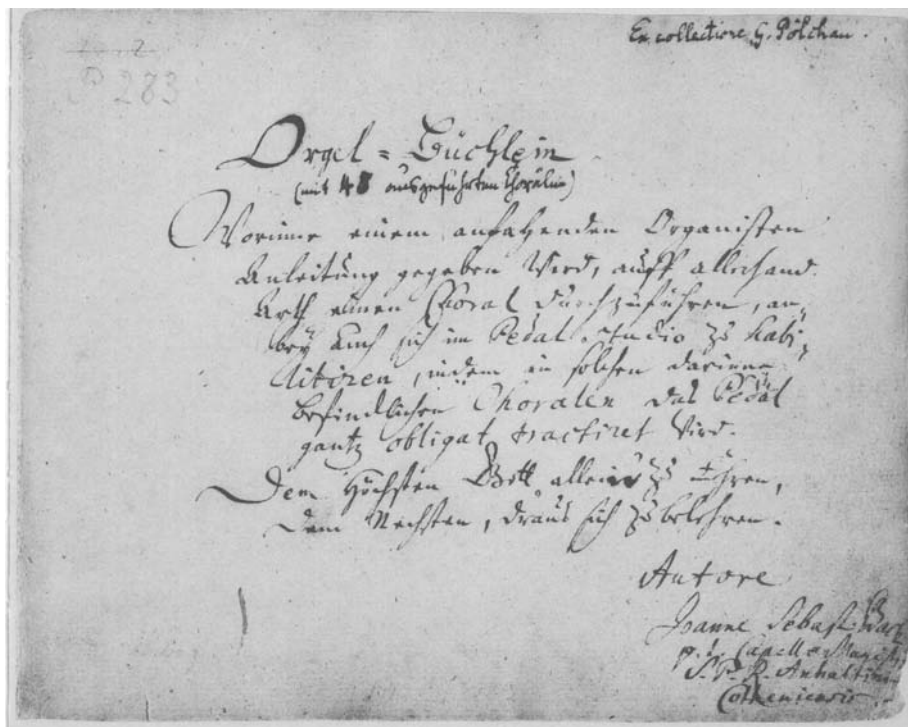 Ex collectione G. Pölchau.
P 283
Orgel-Büchlein
(mit 48 ausgeführten Chorälen)
Worinne einem anfahenden Organisten
Anleitung gegeben wird, auff allerhand
Arth einen Choral durchzuführen, an-
bey auch sich im Pedal studio zu habi-
litiren, indem in solchen darinne
befindlichen Choralen das Pedal
gantz obligat tractiret wird.
Dem Höchsten Gott allein zu Ehren,
Dem Nechsten, draus sich zu belehren.
Autore
Joanne Sebast. Bach
p. t. Capellae Magistri
S. P. R. Anhaltini-
Cotheniensis.